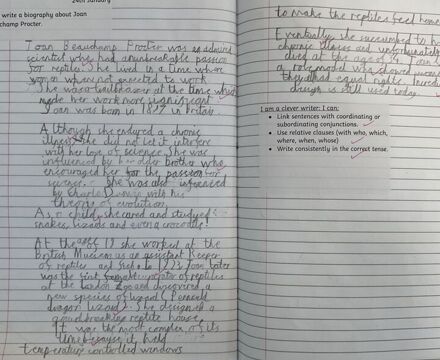 24th January
write a biography about Joan
champ Procter.
Joan Beauchamp Procter was an admired
scientist who had an unbreakable passion
for reptiles. She lived in a time where
women when not expected to work
She was a trailblazer at the time which
made her work more significant
Joan was born in 1897 in Britain
Although she endured a chronic
illness, she did not let it interfere
with her love of science. She was
influenced by her older brother who
encouraged her for the passion for
science. She was also influenced
by Charles Darwin with his
theory of evolution.
As a child, she cared and studied
snakes, lizards and even a crocodile!
At the age 19 she worked at the
British Museum as an assistant Keeper
of reptiles and 1923 Joan later
was the first female of reptiles
at the London Zoo and discovered a
new species of lizard (
dragon lizard). She designed a
groundbreaking reptile house.
It was the most complex of its
time because it held
temperature controlled windows
to make the reptiles feel home
Eventually she succumbed to h
chronic illness and unfortunately
died at the age of 34. Joan
a role model who showed wome
they had equal rights. her
design is still used today.
I am a clever writer: I can:
• Link sentences with coordinating or
subordinating conjunctions.
• Use relative clauses (with who, which,
where, when, whose)
• Write consistently in the correct tense.